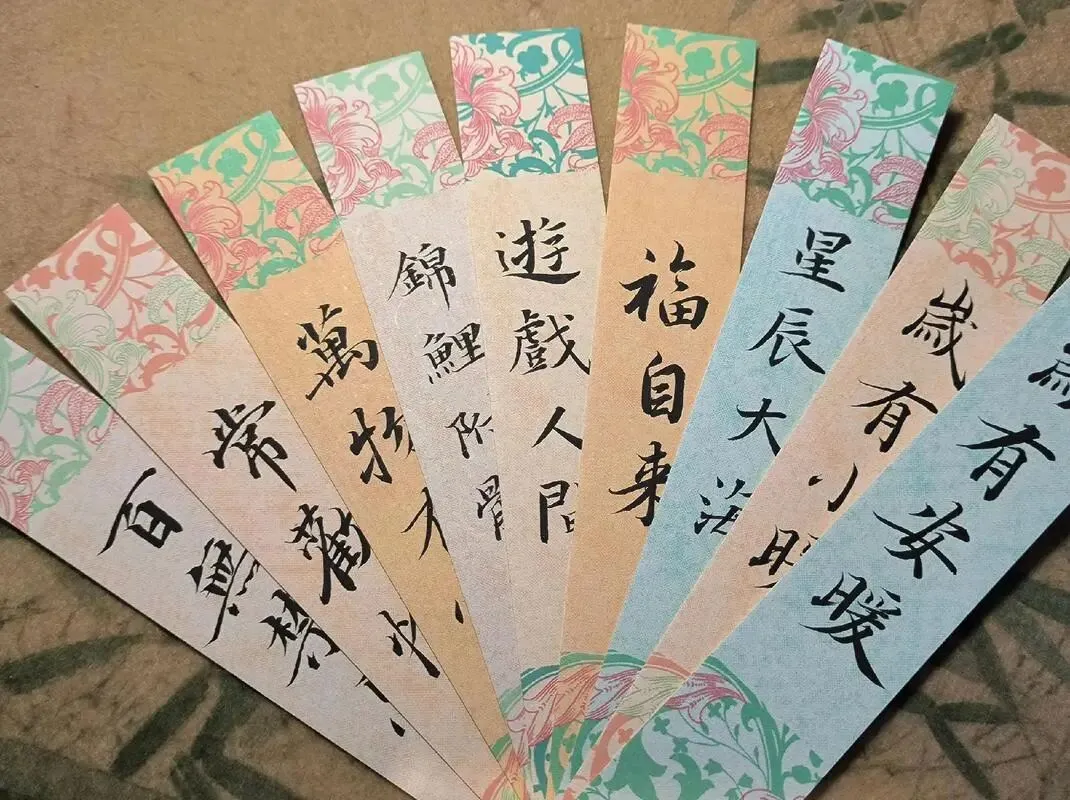 百無禁
常
萬物
錦鯉
遊戲人間
福自来
星辰大海
歲有小暖
有安暖